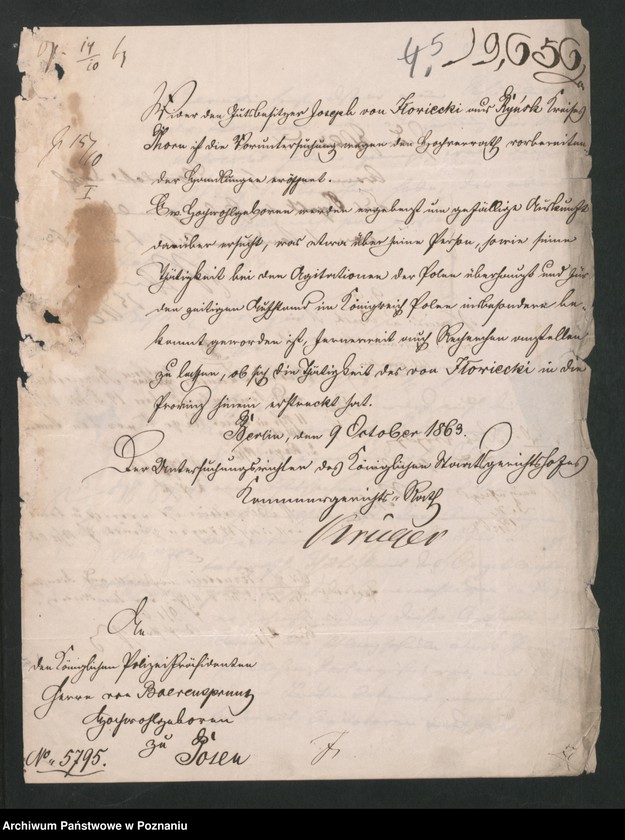 14/10
45
19,656
157
I
Wider den Gutsbesitzer Joseph von Kloriecki aus Ryńsk Kreises
Thorn ist die Voruntersuchung wegen den Hochverrath vorbereiten-
der Handlungen eröffnet.
Ew. Hochwohlgeboren werden ergebenst um gefällige Auskunft
darüber ersucht, was etwa über seine Person, sowie seine
Thätigkeit bei den Agitationen der Polen überhaupt und für
den jetzigen Aufstand im Königreich Polen insbesondere be-
kannt geworden ist, seinerseit auch Recherchen anstellen
zu lassen, ob sich die Thätigkeit des von Kloriecki in die
Provinz hinein erstreckt hat.
Berlin, den 9 October 1863.
Der Untersuchungsrichter des Königlichen Staatsgerichtshofes
Kammergerichts-Rath
Krüger
An
den Königlichen Polizei Präsidenten
Herrn von Baerensprung
Hochwohlgeboren
zu
Posen
No. 5795.
Archiwum Państwowe w Poznaniu